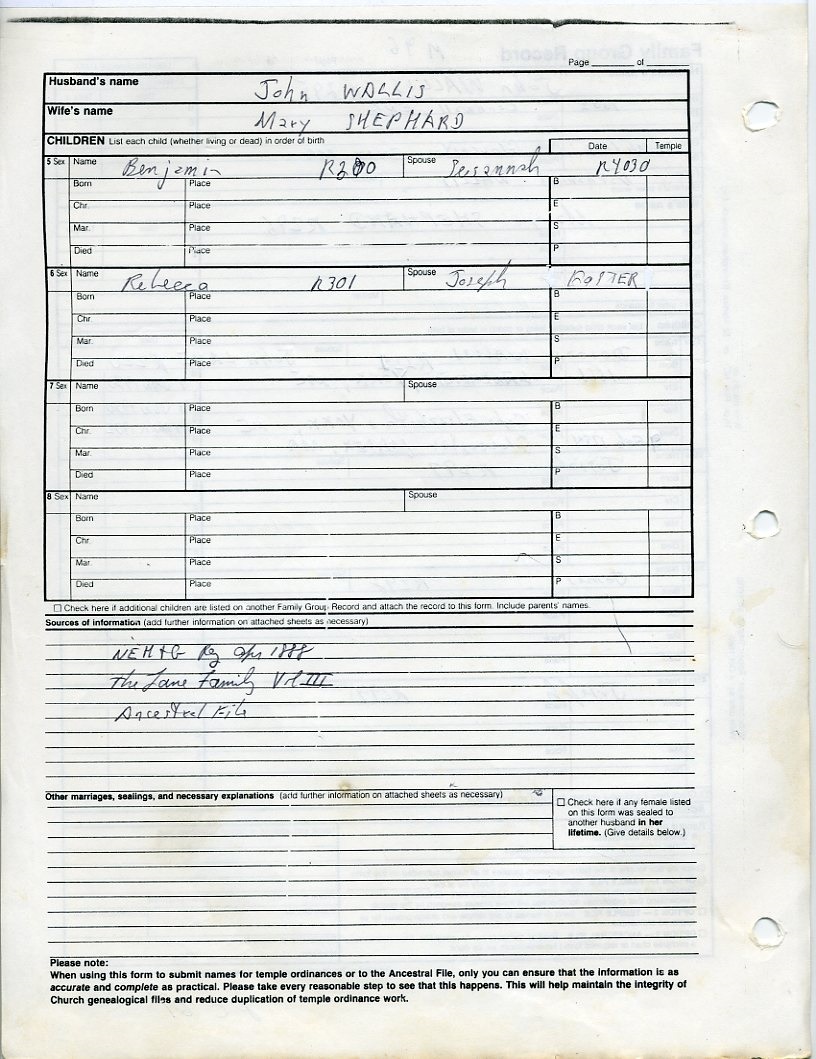 Page ______ of ______
Husband's name John WALLIS
Wife's name Mary SHEPHARD
CHILDREN List each child (whether living or dead) in order of birth Date Temple
5 Sex Name Benjamin Spouse Susannah R4030
Born Place B
Chr. Place E
Mar. Place S
Died Place P
6 Sex Name Rebecca R301 Spouse Joseph FOSTER
Born Place B
Chr. Place E
Mar. Place S
Died Place P
7 Sex Name Spouse
Born Place B
Chr. Place E
Mar. Place S
Died Place P
8 Sex Name Spouse
Born Place B
Chr. Place E
Mar. Place S
Died Place P
☐ Check here if additional children are listed on another Family Group Record and attach the record to this form. Include parents' names.
Sources of information (add further information on attached sheets as necessary)
NEH&G Reg Apr 1888
The Lane Family Vol III
Ancestral File
Other marriages, sealings, and necessary explanations (add further information on attached sheets as necessary)
☐ Check here if any female listed
on this form was sealed to
another husband in her
lifetime. (Give details below.)
Please note:
When using this form to submit names for temple ordinances or to the Ancestral File, only you can ensure that the information is as
accurate and complete as practical. Please take every reasonable step to see that this happens. This will help maintain the integrity of
Church genealogical files and reduce duplication of temple ordinance work.